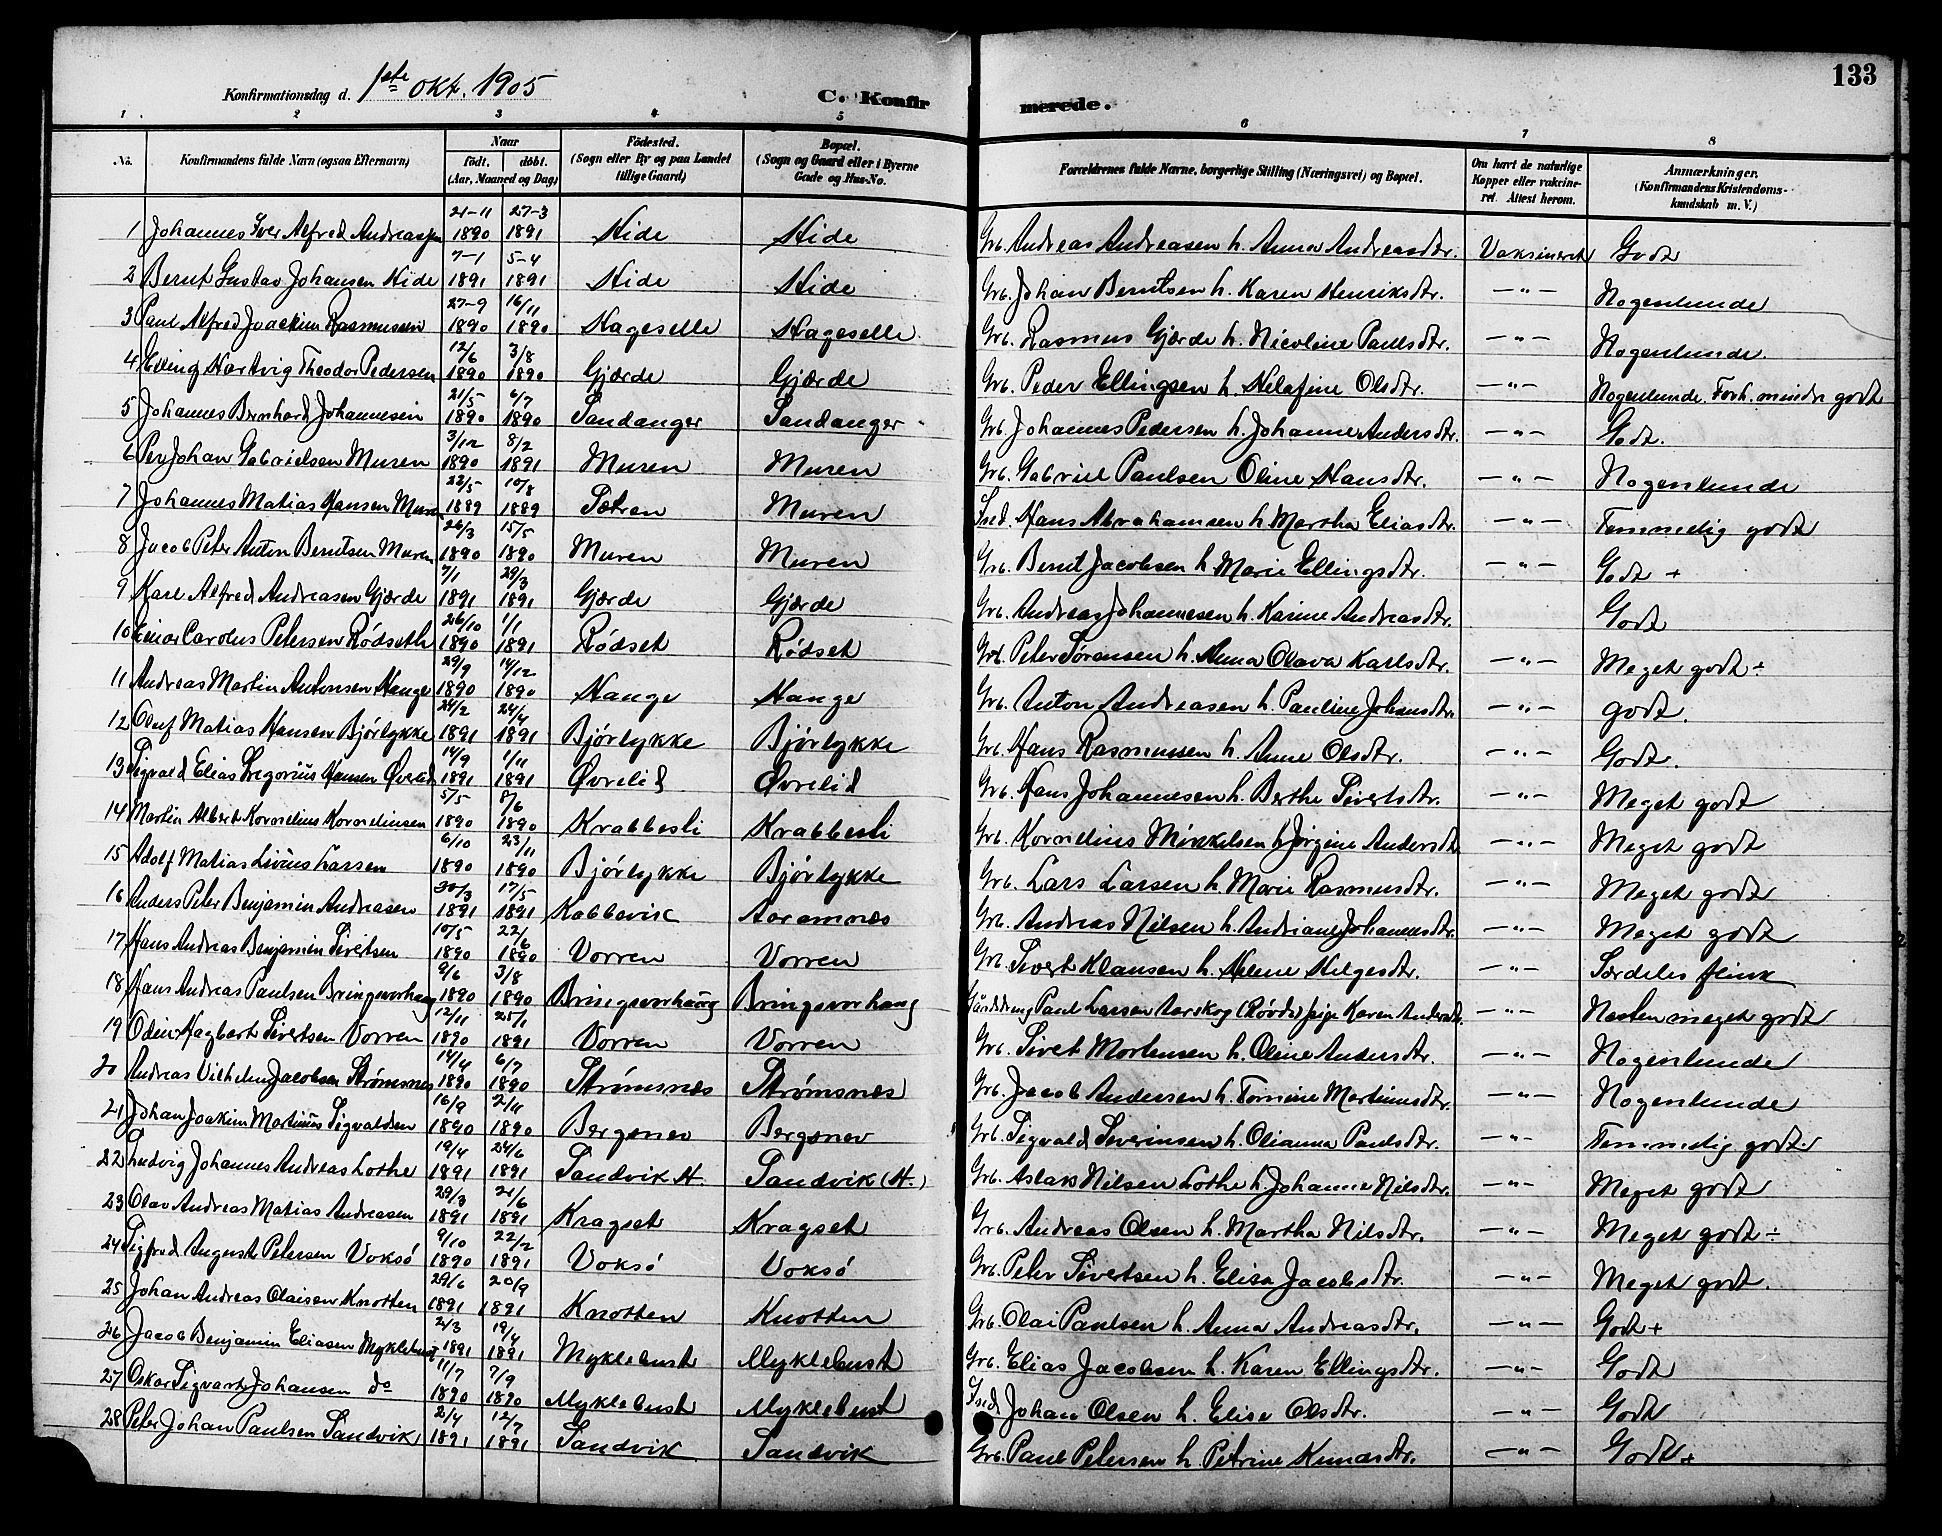 133
Konfirmationsdag d. 1ste okt. 1905
C. Konfirmerede.
1 2 3 4 5 6 7 8
No. Konfirmandens fulde Navn (ogsaa Efternavn) Naar födt. döbt. (Aar, Maaned og Dag) Födested. (Sogn eller By og paa Landet tillige Gaard) Bopæl. (Sogn og Gaard eller i Byerne Gade og Hus-No. Forældrenes fulde Navne, borgerlige Stilling (Næringsvei) og Bopæl. Om havt de naturlige Kopper eller vakcineret. Attest herom. Anmærkninger. (Konfirmandens Kristendomskundskab m. V.)
1 Johannes Iver Alfred Andreassen 21-11 1890 27-3 1891 Hide Hide Grb. Andreas Andreasen h. Anna Andreasdtr. Vaksineret Godt
2 Bernt Gustav Johansen Hide 7-1 1891 5-4 1891 Hide Hide Grb. Johan Berntsen h. Karen Henriksdtr. -"- Nogenlunde
3 Paul Alfred Joackim Rasmussen 27-9 1890 16/11 1890 Hageselle Hageselle Grb. Rasmus Gjærde h. Nicoline Paulsdtr. -"- Nogenlunde.
4 Elling Hartvig Theodor Pedersen 12/6 1890 3/8 1890 Gjærde Gjærde Grb. Peder Ellingsen h. Olsdtr. -"- Nogenlunde. Forh. mindre godt
5 Johannes Bernhard Johannesen 21/5 1890 6/7 1890 Sandanger Sandanger Grb. Johannes Pedersen h. Johanne Andersdtr. -"- Godt.
6 Per Johan Gabrielsen Muren 3/12 1890 8/2 1891 Muren Muren Grb. Gabriel Paulsen Oline Hansdtr. -"- Nogenlunde
7 Johannes Matias Hansen Muren 22/5 1889 10/8 1889 Sætren Muren Ind. Hans Abrahamsen h. Martha Eliasdtr. -"- Temmelig godt
8 Jacob Peter Anton Berntsen Muren 26/3 1890 15/5 1890 Muren Muren Grb. Bernt Jacobsen h. Marie Ellingsdtr. -"- Godt +
9 Karl Alfred Andreasen Gjærde 7/1 1891 29/3 1891 Gjærde Gjærde Grb. Andreas Johannesen h. Karine Andreasdtr. -"- Godt
10 Einar Carolus Petersen Rödseth 26/10 1890 1/1 1891 Rödset Rödset Grb. Peter Sørensen h. Anna Olava Karlsdtr. -"- Meget godt ÷
11 Andreas Martin Antonsen Hauge 29/9 1890 14/12 1890 Hauge Hauge Grb. Anton Andreasen h. Pauline Johansdtr. -"- godt.
12 Oluf Matias Hansen Bjørlykke 24/2 1891 24/4 1891 Bjørlykke Bjørlykke Grb. Hans Rasmussen h. Anne Olsdtr. -"- Godt.
13 Sigvald Elias Gregorius Hansen Øvrelid 14/9 1891 1/11 1891 Øvrelid Øvrelid Grb. Hans Johannesen h. Berthe Sivertsdtr. -"- Meget godt
14 Martin Albert Kornelius Kornelinsen 5/5 1890 8/6 1890 Krabbesli Krabbesli Grb. Kornelius Mikkelsen h. Jørgine Andersdtr. -"- Meget godt
15 Adolf Matias Livius Larsen 6/10 1890 23/11 1890 Bjørlykke Bjørlykke Grb. Lars Larsen h. Marie Rasmusdtr. -"- Meget godt
16 Anders Peter Benjamin Andreasen 30/3 1891 17/5 1891 Kobbevik Aaramnes Grb. Andreas Nilsen h. Andriane Johannesdtr. -"- Meget godt
17 Hans Andreas Benjamin Sivertsen 10/5 1890 22/6 1890 Vorren Vorren Grb. Sivert Klausen h. Helene Helgesdtr. -"- Særdeles flink
18 Hans Andreas Paulsen Bringsvorhaug 9/6 1890 3/8 1890 Bringsvorhaug Bringsvorhaug Gårddreng Paul Larsen Aarskog (Røvde) pige Karen Andersdtr. -"- Næsten meget godt
19 Odin Hagbart Sivertsen Vorren 12/11 1890 25/1 1891 Vorren Vorren Grb. Sivert Mortensen h. Oline Andersdtr. -"- Nogenlunde
20 Andreas Vilhelm Jacobsen Strømsnes 14/4 1890 6/7 1890 Strømsnes Strømsnes Grb. Jacob Andersen h. Tomine Martinusdtr. -"- Nogenlunde
21 Johan Joakim Martinus Sigvaldsen 16/9 1890 2/11 1890 Bergsnev Bergsnev Grb. Sigvald Severinsen h. Olianna Paulsdtr. -"- Temmelig godt.
22 Ludvig Johannes Andreas Lothe 19/4 1891 24/6 1891 Sandvik H. Sandvik (H.) Grb. Aslak Nilsen Lothe h. Johanne Nilsdtr. -"- Meget godt
23 Olav Andreas Matias Andreasen 29/3 1891 21/6 1891 Kragset Kragset Grb. Andreas Olsen h. Martha Nilsdtr. -"- Meget godt ÷
24 Sigfred August Petersen Voksö 9/10 1890 22/2 1891 Voksö Voksö Grb. Peter Sivertsen h. Elisa Jacobsdtr. -"- Meget godt.
25 Johan Andreas Olaisen Knotten 29/6 1891 20/9 1891 Knotten Knotten Grb. Olai Paulsen h. Anna Andreasdtr. -"- Godt +
26 Jacob Benjamin Eliasen Myklebust 2/3 1891 19/4 1891 Myklebust Myklebust Grb. Elias Jacobsen h. Karen Ellingsdtr. -"- Godt
27 Oskar Sigvart Johansen do 11/7 1890 7/9 1890 Myklebust Myklebust Ind. Johan Olsen h. Elise Olsdtr. -"- Godt
28 Peter Johan Paulsen Sandvik 2/4 1891 12/7 1891 Sandvik Sandvik Grb. Paul Petersen h. Petrine Knudsdtr. -"- Godt +